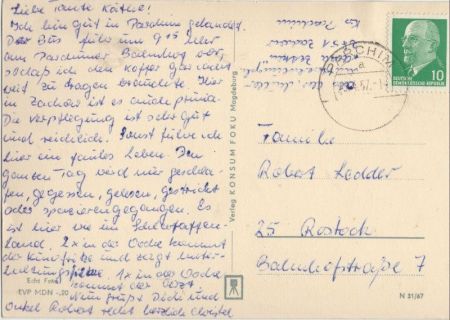 Liebe Tante Käthe!
Ich bin gut in Parchim gelandet.
Der Bus fuhr um 9 15 hier
am Parchimer Bahnhof vor,
so daß ich den Koffer gar nicht
weit zu tragen brauchte. Hier
in Zachow ist es prima.
Die Verpflegung ist sehr gut
und reichlich. Sonst führe ich
hier ein faules Leben. Den
ganzen Tag wird hier geschla-
fen, gegessen, gelesen, gestrickt
oder spazierengegangen. Es
ist hier wie im Schlaraffen-
land. 2x in der Woche kommt
der und zeigt Unter-
1x in der Woche
kommt der Arzt.
Nun grüßt Dich und
Onkel Robert recht herzlich Christel
Echt Foto
EVP MDN -,20
Verlag KONSUM FOKU Magdeburg
PARCHIM
a
DEUTSCHE
DEMOKRATISCHE REPUBLIK
10
Familie
Robert Ledder
25 Rostock
Bahnhofstraße 7
N 31/67